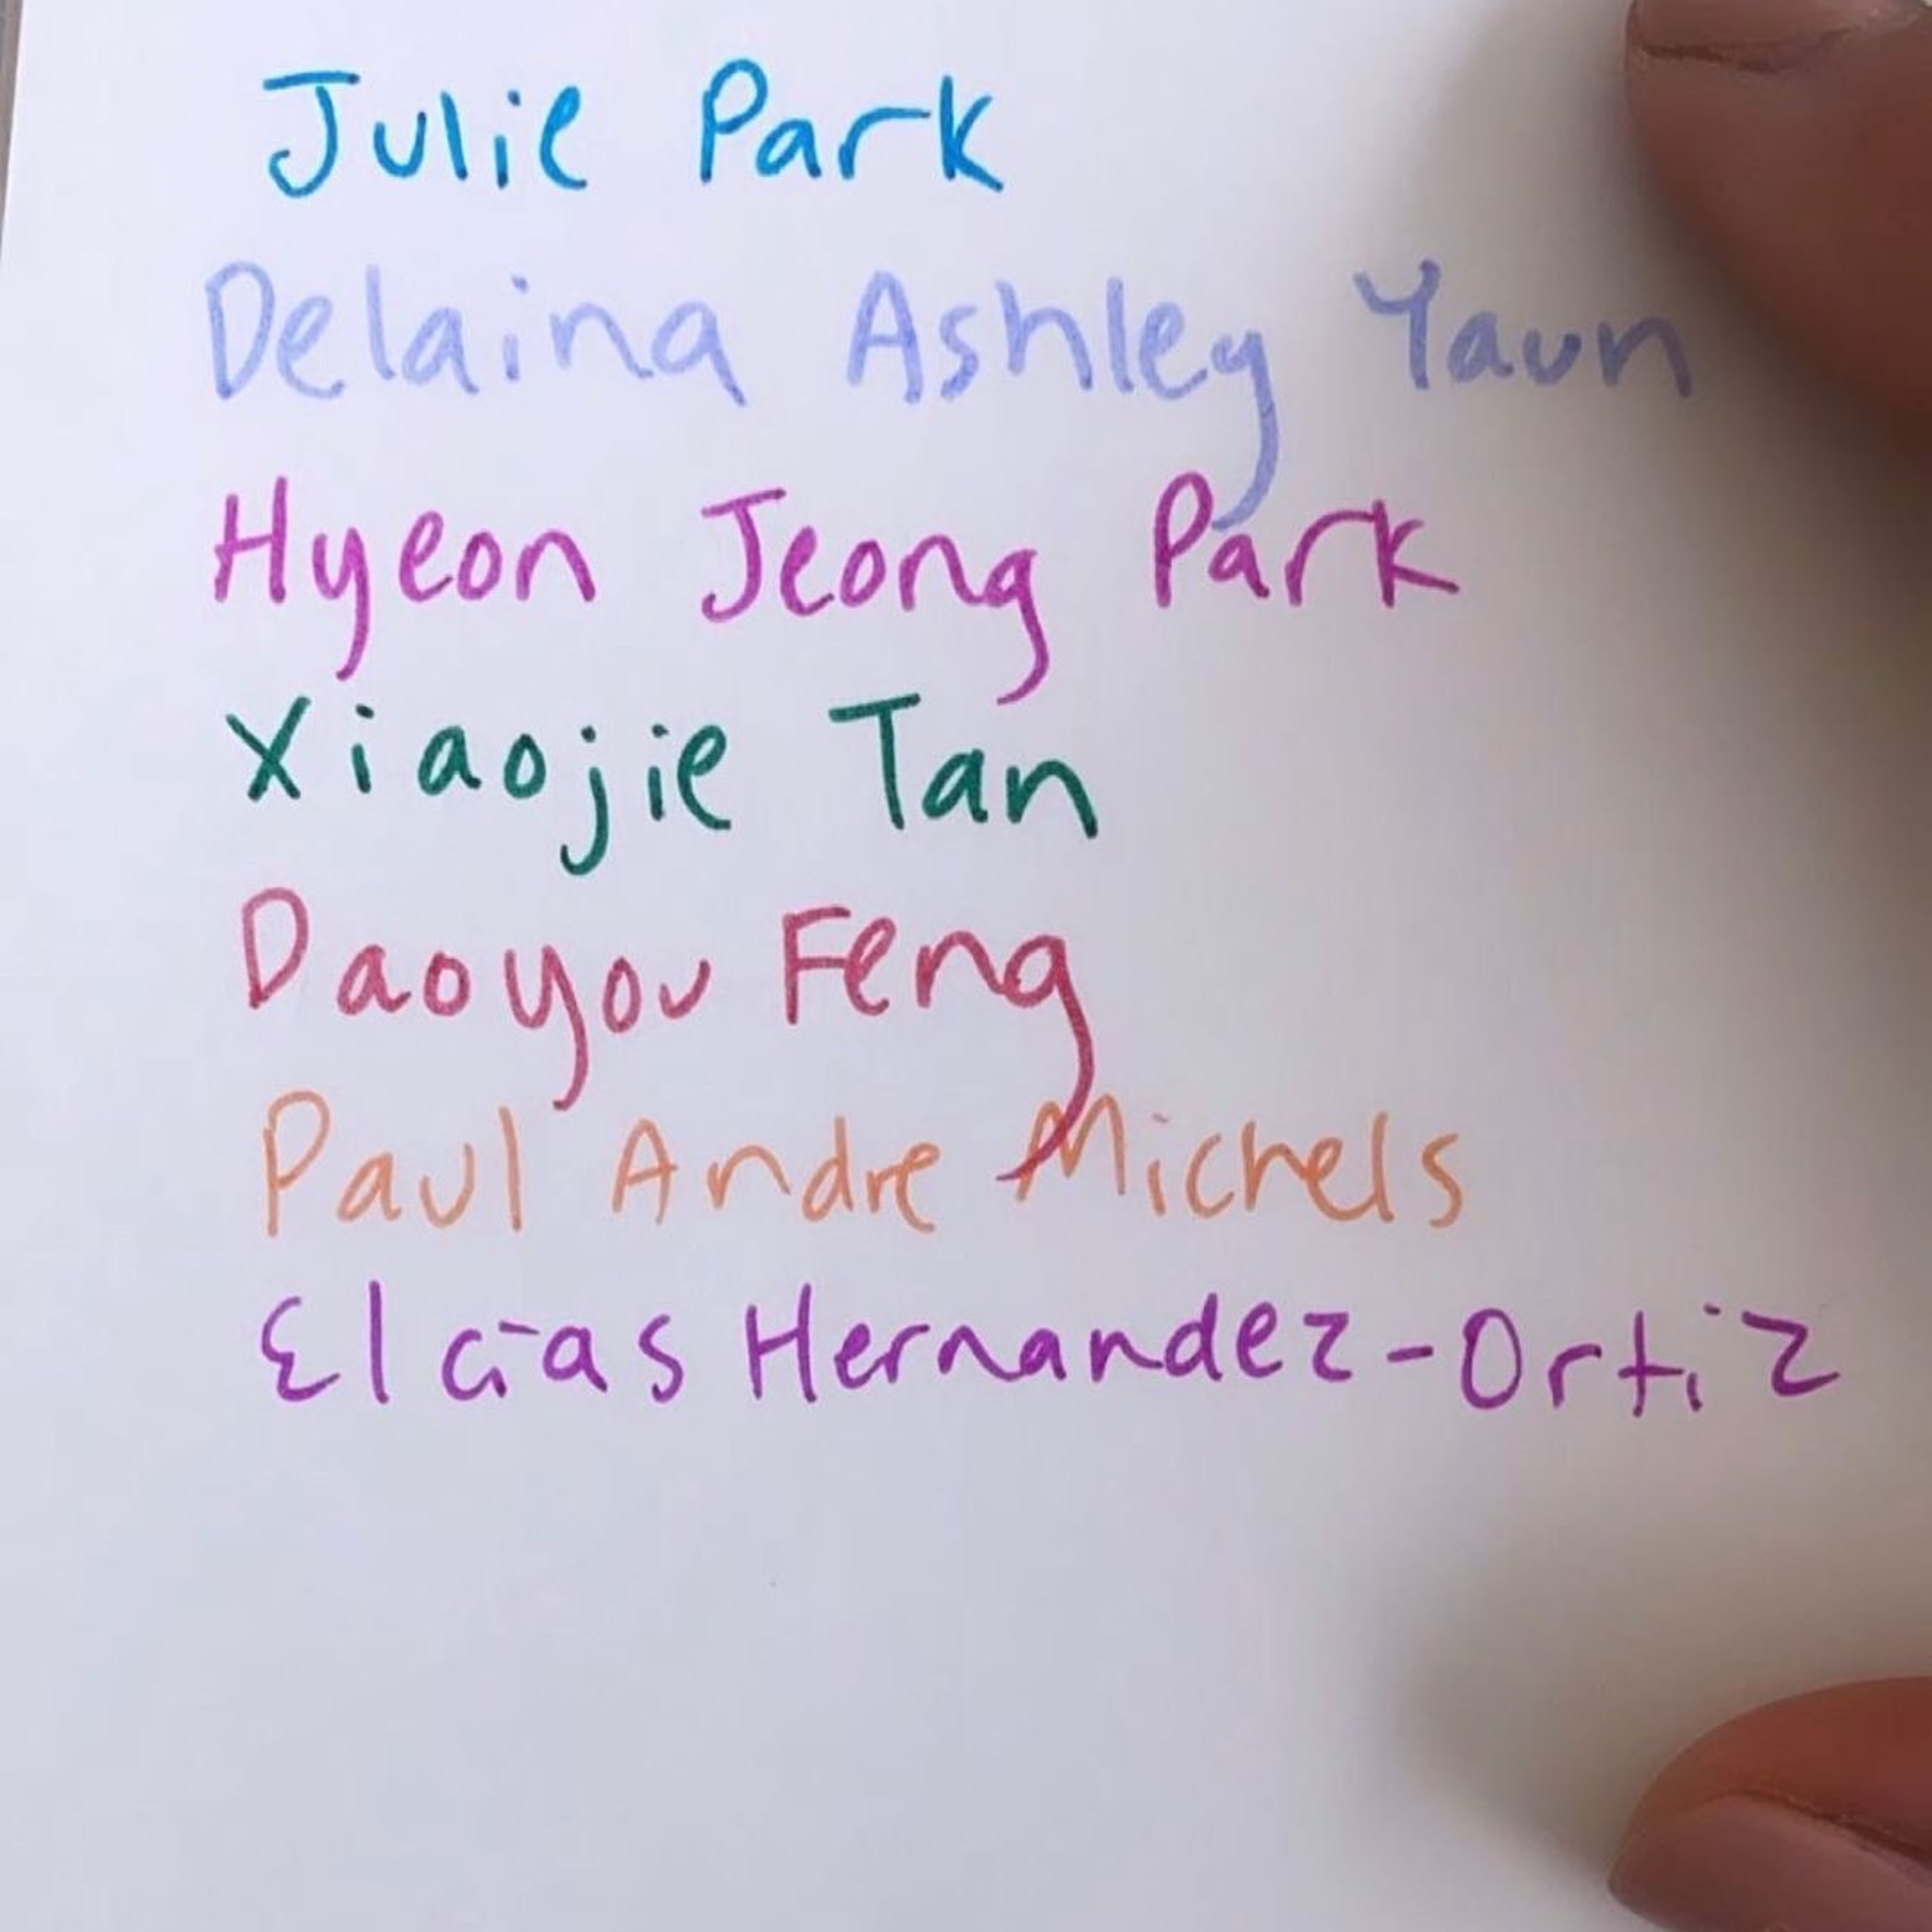 Julie Park
Delaina Ashley Yaun
Hyeon Jeong Park
Xiaojie Tan
Daoyou Feng
Paul Andre Michels
Elcias Hernandez-Ortiz